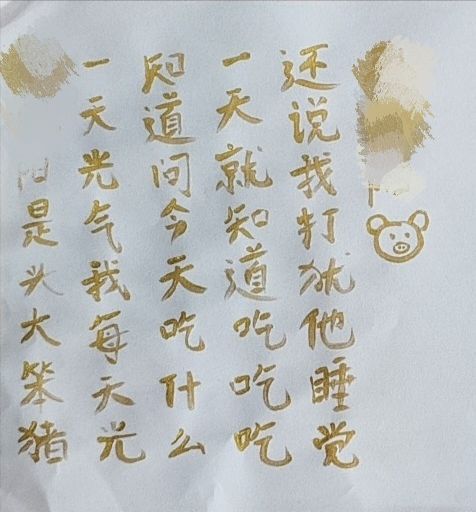 还说我打扰他睡觉
一天就知道吃吃吃
知道问今天吃什么
一天光气我每天光
是头大笨猪